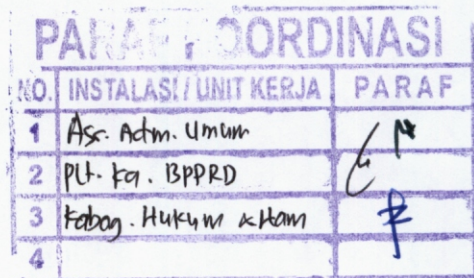 PARAF KOORDINASI
NO. INSTALASI / UNIT KERJA PARAF
1 Ass. Adm. Umum
2 Plt. Ka. BPPRD
3 Kabag. Hukum & Ham
4